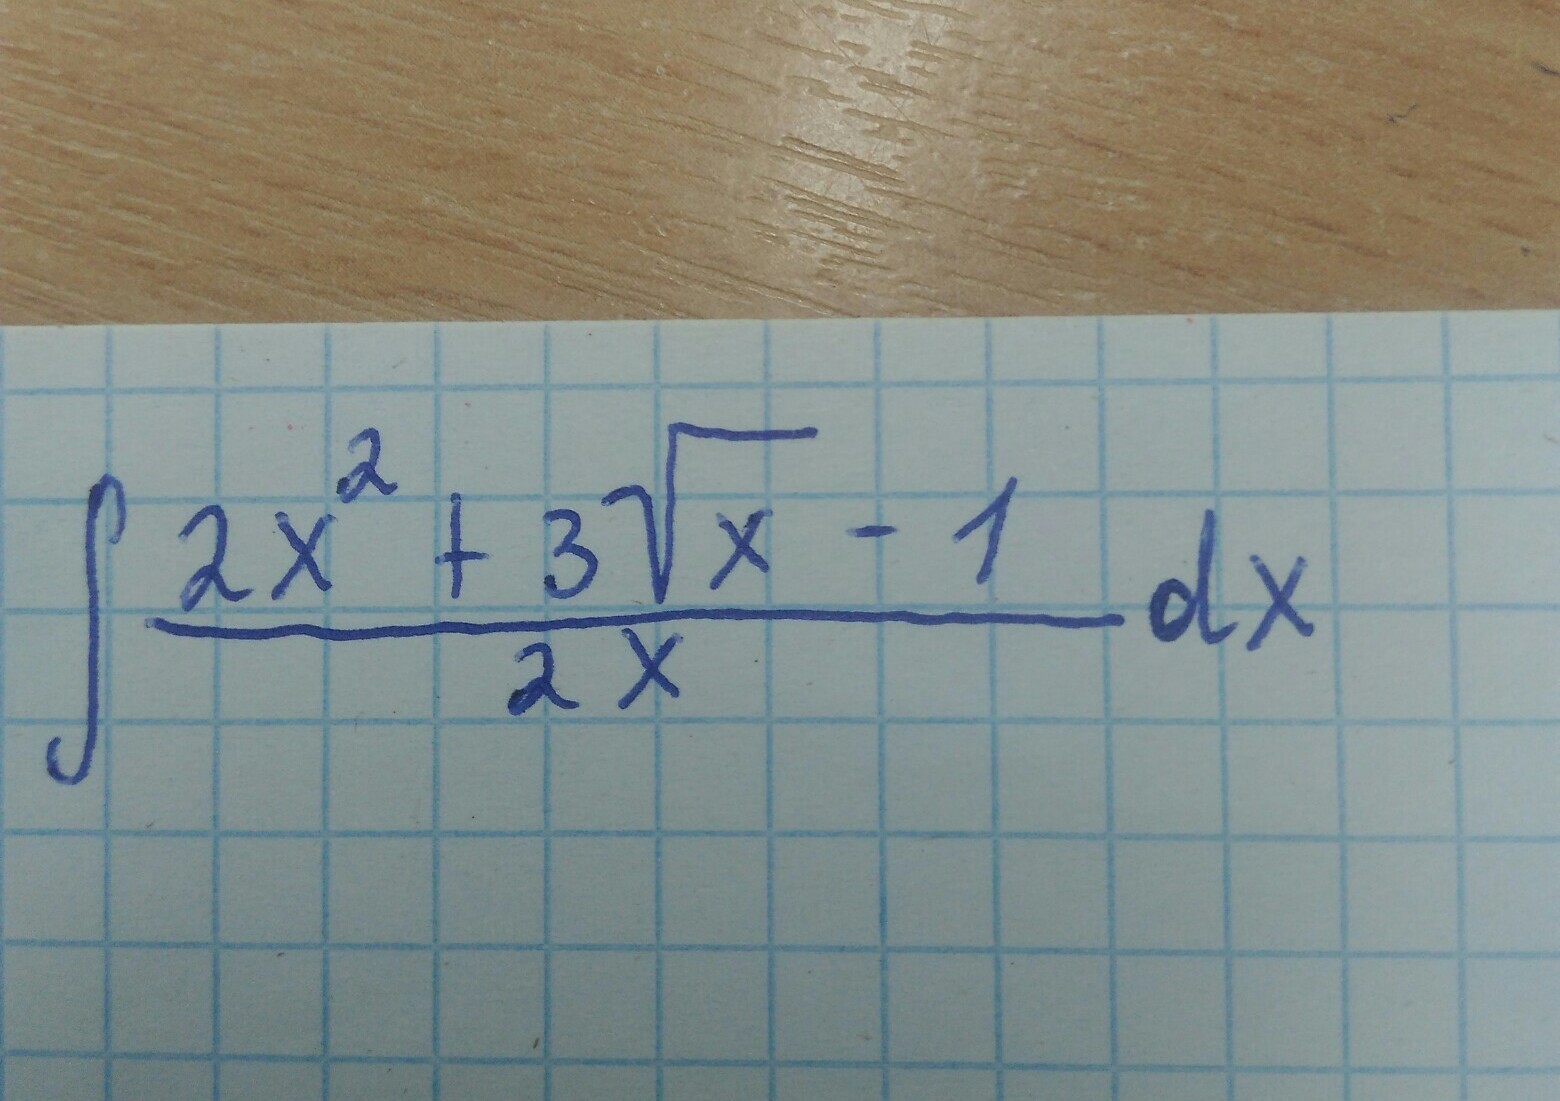 ∫ (2x² + 3√x - 1)/(2x) dx